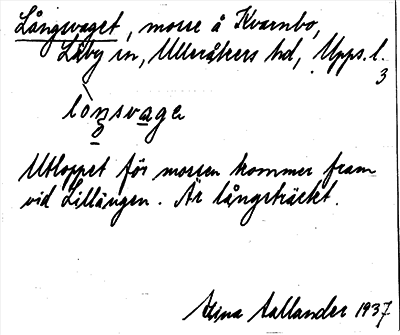 Långsvaget, mosse å Kvarnbo,
Läby sn, Ulleråkers hd, Upps. l.
3
lòŋsvage
Utloppet för mossen kommer fram
vid Lillängen. Är långsträckt.
Stina Aallander 1937